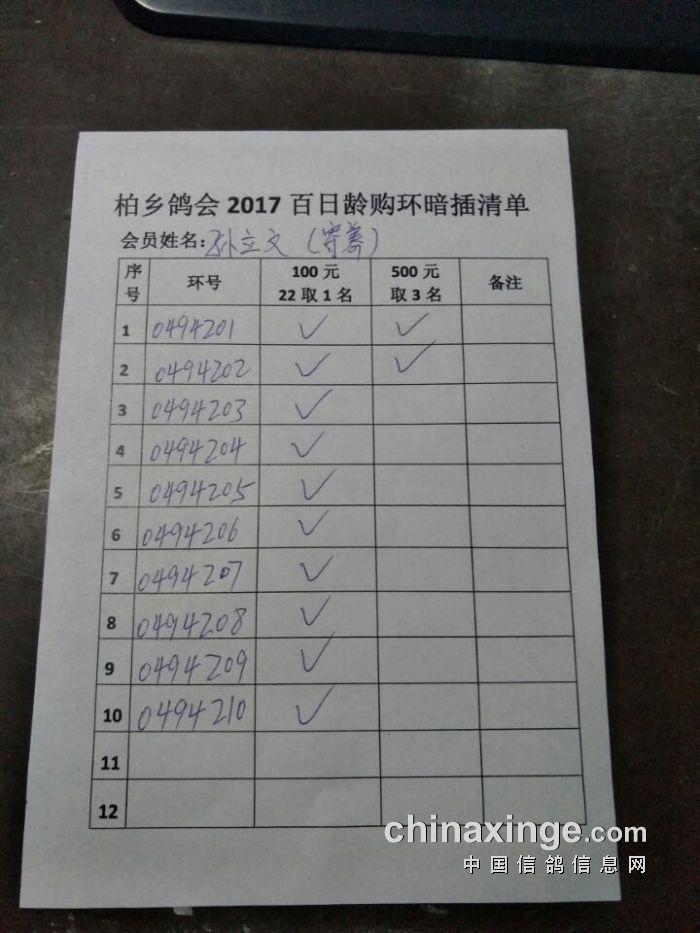 柏乡鸽会2017百日龄购环暗插清单
会员姓名:孙立文(守善)
序号 环号 100元 22取1名 500元 取3名 备注
1 0494201 ✓ ✓
2 0494202 ✓ ✓
3 0494203 ✓
4 0494204 ✓
5 0494205 ✓
6 0494206 ✓
7 0494207 ✓
8 0494208 ✓
9 0494209 ✓
10 0494210 ✓
11
12
chinaxinge.com
中国信鸽信息网